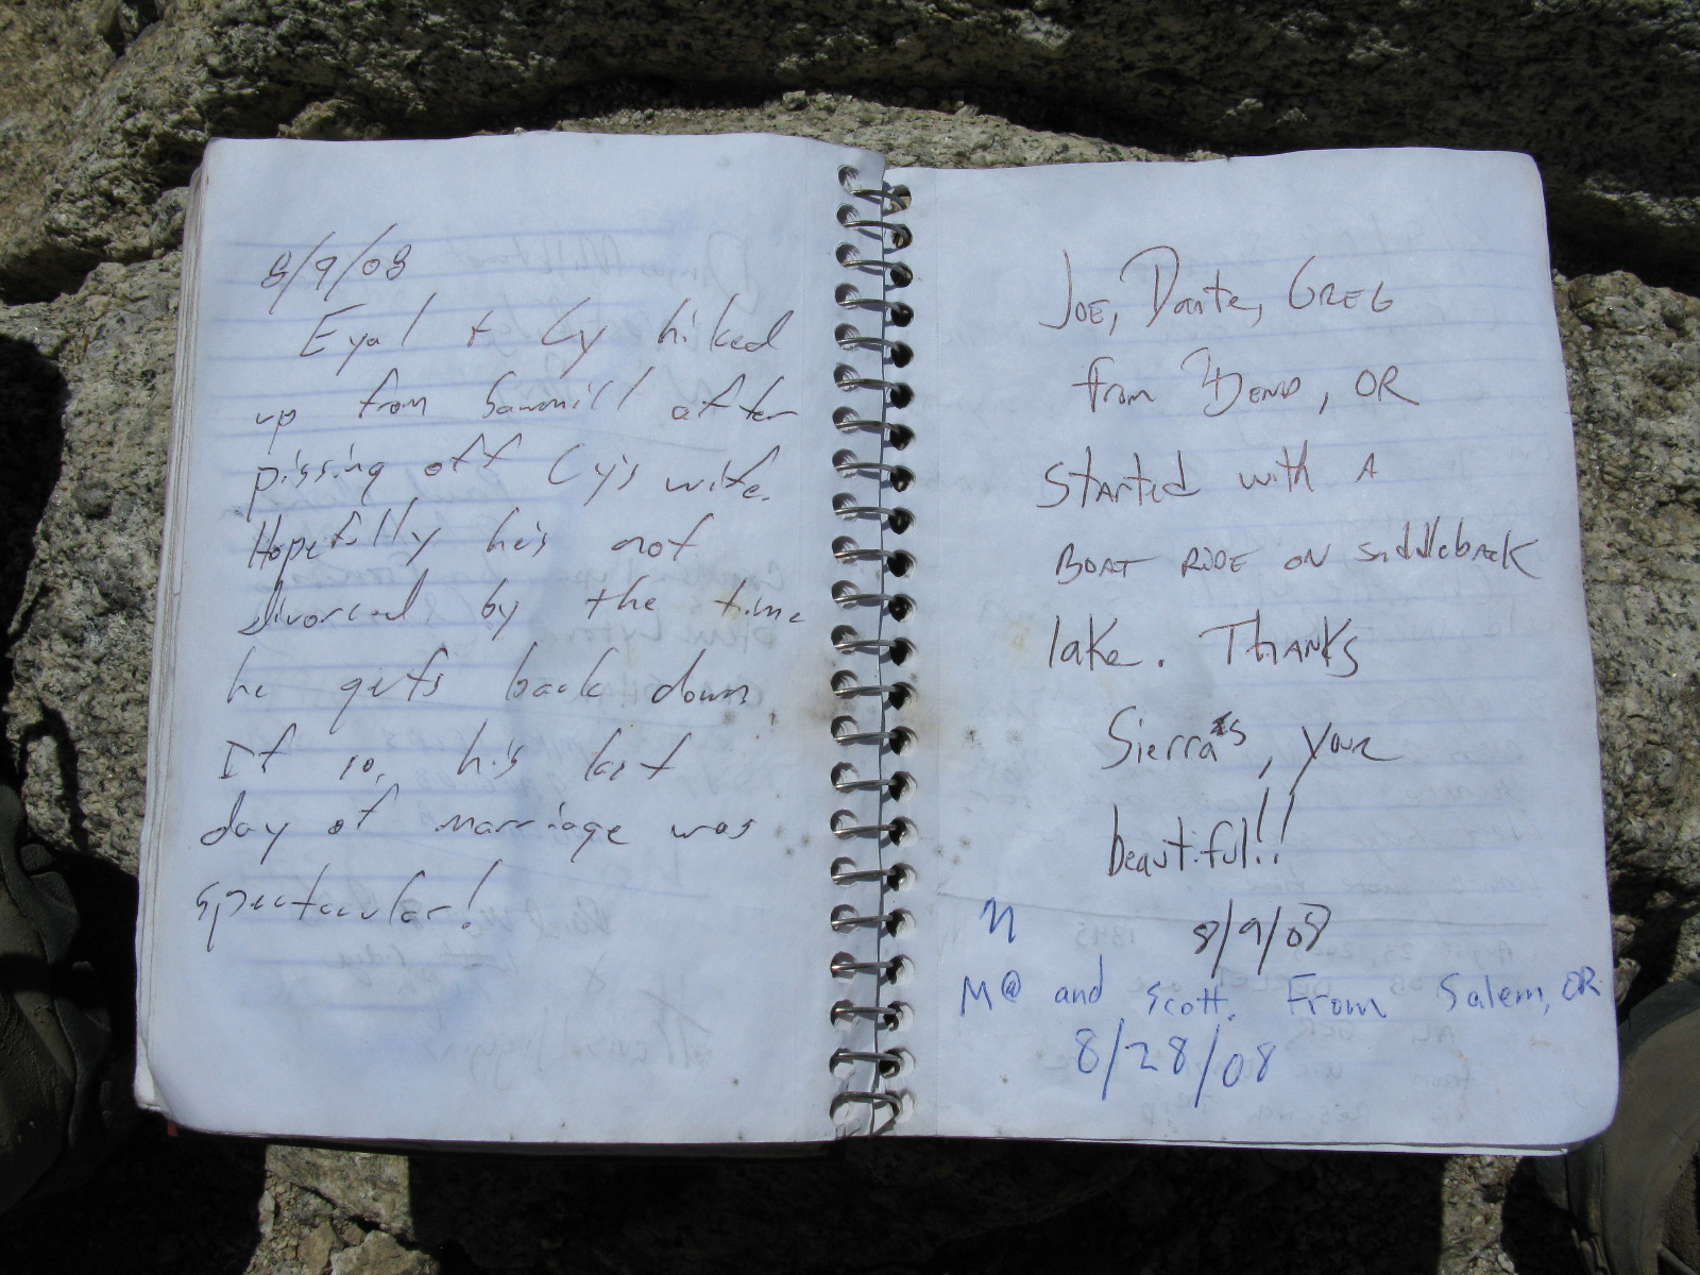 8/9/08
Eyal + Cy hiked
up from Sawmill after
pissing off Cy's wife.
Hopefully he's not
divorced by the time
he gets back down
If so, his last
day of marriage was
spectacular!
JOE, Dante, GREG
from BEND, OR
started with A
BOAT RIDE ON Saddleback
lake. THANKS
Sierra's, your
beautiful!!
8/9/08
M@ and Scott. From Salem, OR
8/28/08